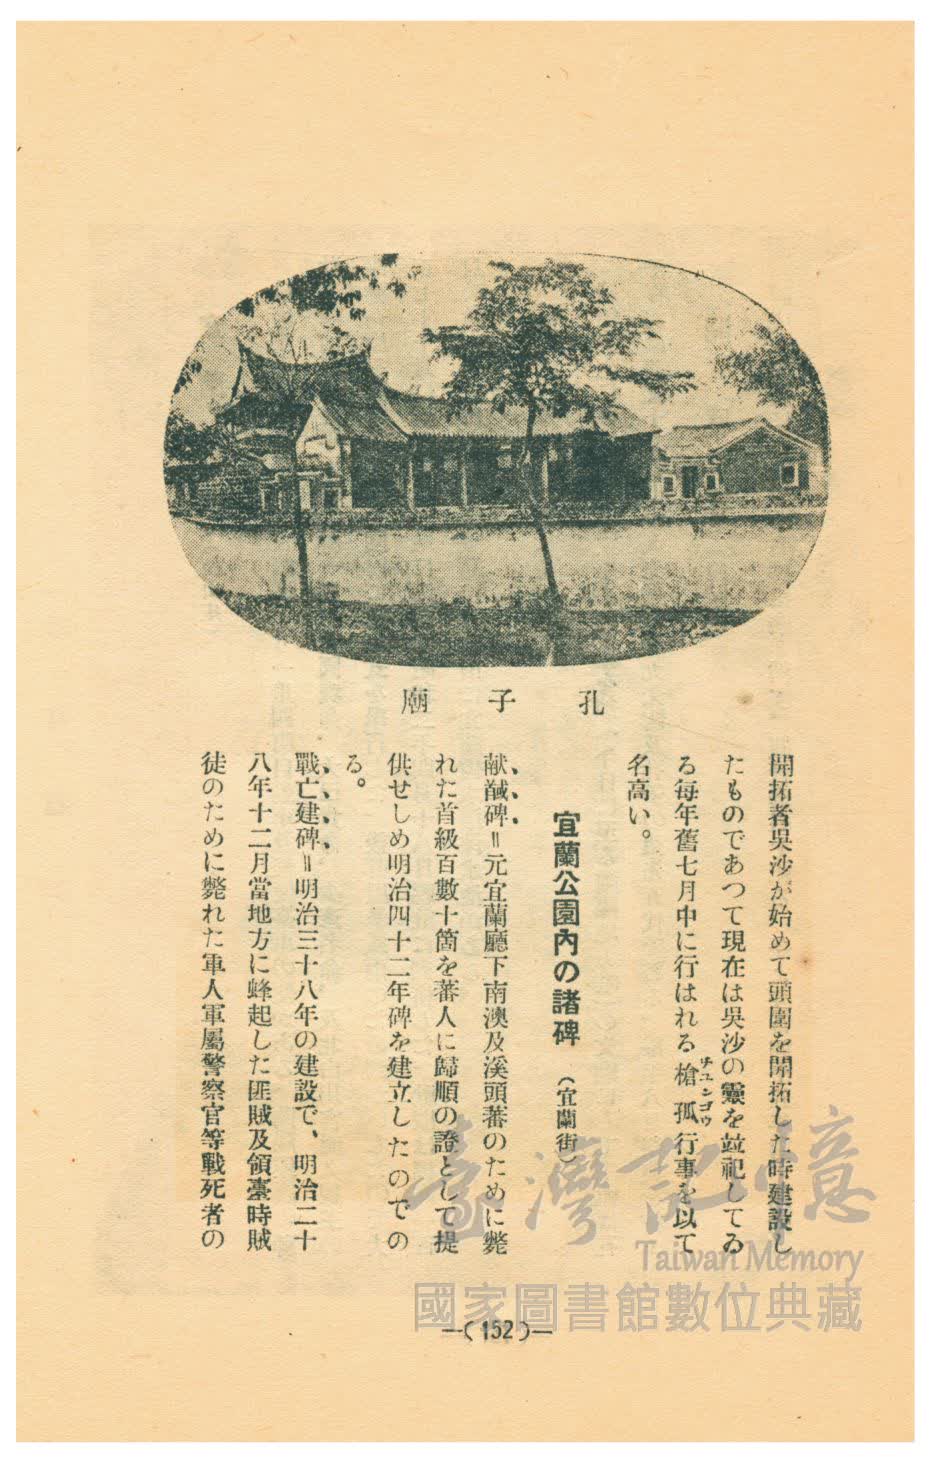 孔子廟
開拓者吳沙が始めて頭圍を開拓した時建設し
たものであつて現在は吳沙の靈を竝祀してゐ
る每年舊七月中に行はれる槍孤行事を以て
チユンゴウ
名高い。
宜蘭公園內の諸碑（宜蘭街）
献馘碑＝元宜蘭廳下南澳及溪頭蕃のために斃
れた首級百數十箇を蕃人に歸順の證として提
供せしめ明治四十二年碑を建立したのでの
る。
戰亡建碑＝明治三十八年の建設で、明治二十
八年十二月當地方に蜂起した匪賊及領臺時賊
徒のために斃れた軍人軍屬警察官等戰死者の
—(152)—
臺灣記憶
Taiwan Memory
國家圖書館數位典藏